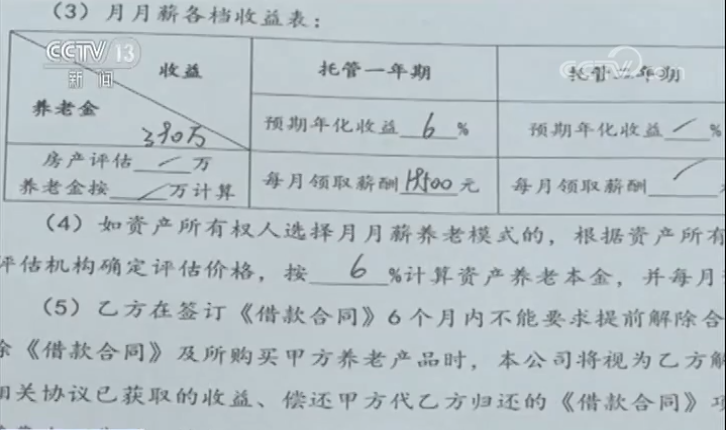 (3)月月薪各档收益表：
CCTV 13
新闻
收益
托管一年期
托管二年期
养老金
390万
预期年化收益 6 %
预期年化收益 %
房产评估 万
养老金按 万计算
每月领取薪酬 19500 元
每月领取薪酬
(4)如资产所有权人选择月月薪养老模式的，根据资产所有
评估机构确定评估价格，按 6 %计算资产养老本金，并每月
(5)乙方在签订《借款合同》6个月内不能要求提前解除合
除《借款合同》及所购买甲方养老产品时，本公司将视为乙方解
相关协议已获取的收益、偿还甲方代乙方归还的《借款合同》项